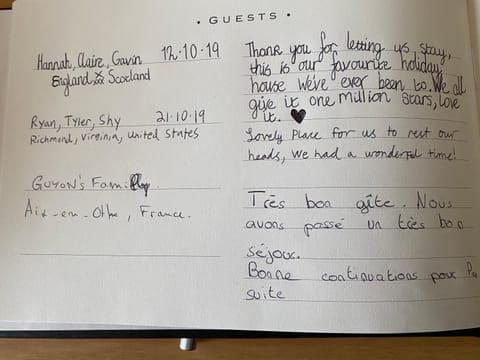 • GUESTS •
Hannah, Claire, Gavin 12.10.19
England Scotland
Thank you for letting us stay,
this is our favourite holiday
house we've ever been to. We all
give it one million stars, love
it. ♥
Ryan, Tyler, Shy 21.10.19
Richmond, Virginia, United States
Lovely Place for us to rest our
heads, We had a wonderful time!
GUYON's Family
Aix-en-Othe, France.
Très bon gîte. Nous
avons passé un très bon
séjour.
Bonne continuations pour la
suite